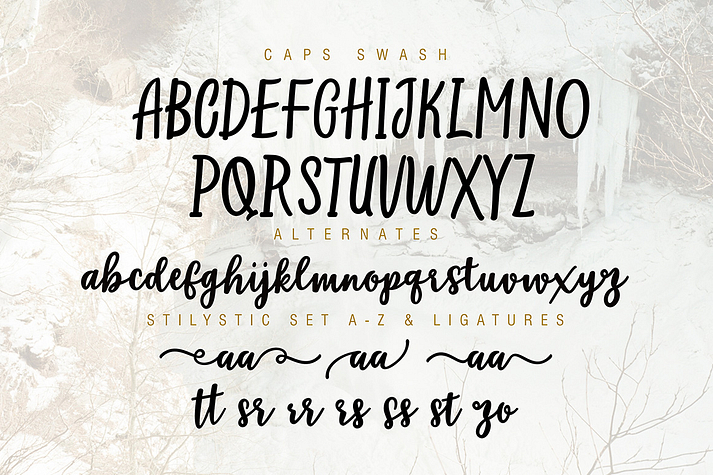 CAPS SWASH
ABCDEFGHIJKLMNO
PQRSTUVWXYZ
ALTERNATES
abcdefghijklmnopqrstuvwxyz
STILYSTIC SET A-Z & LIGATURES
aa aa aa
tt sr rr rs ss st yo